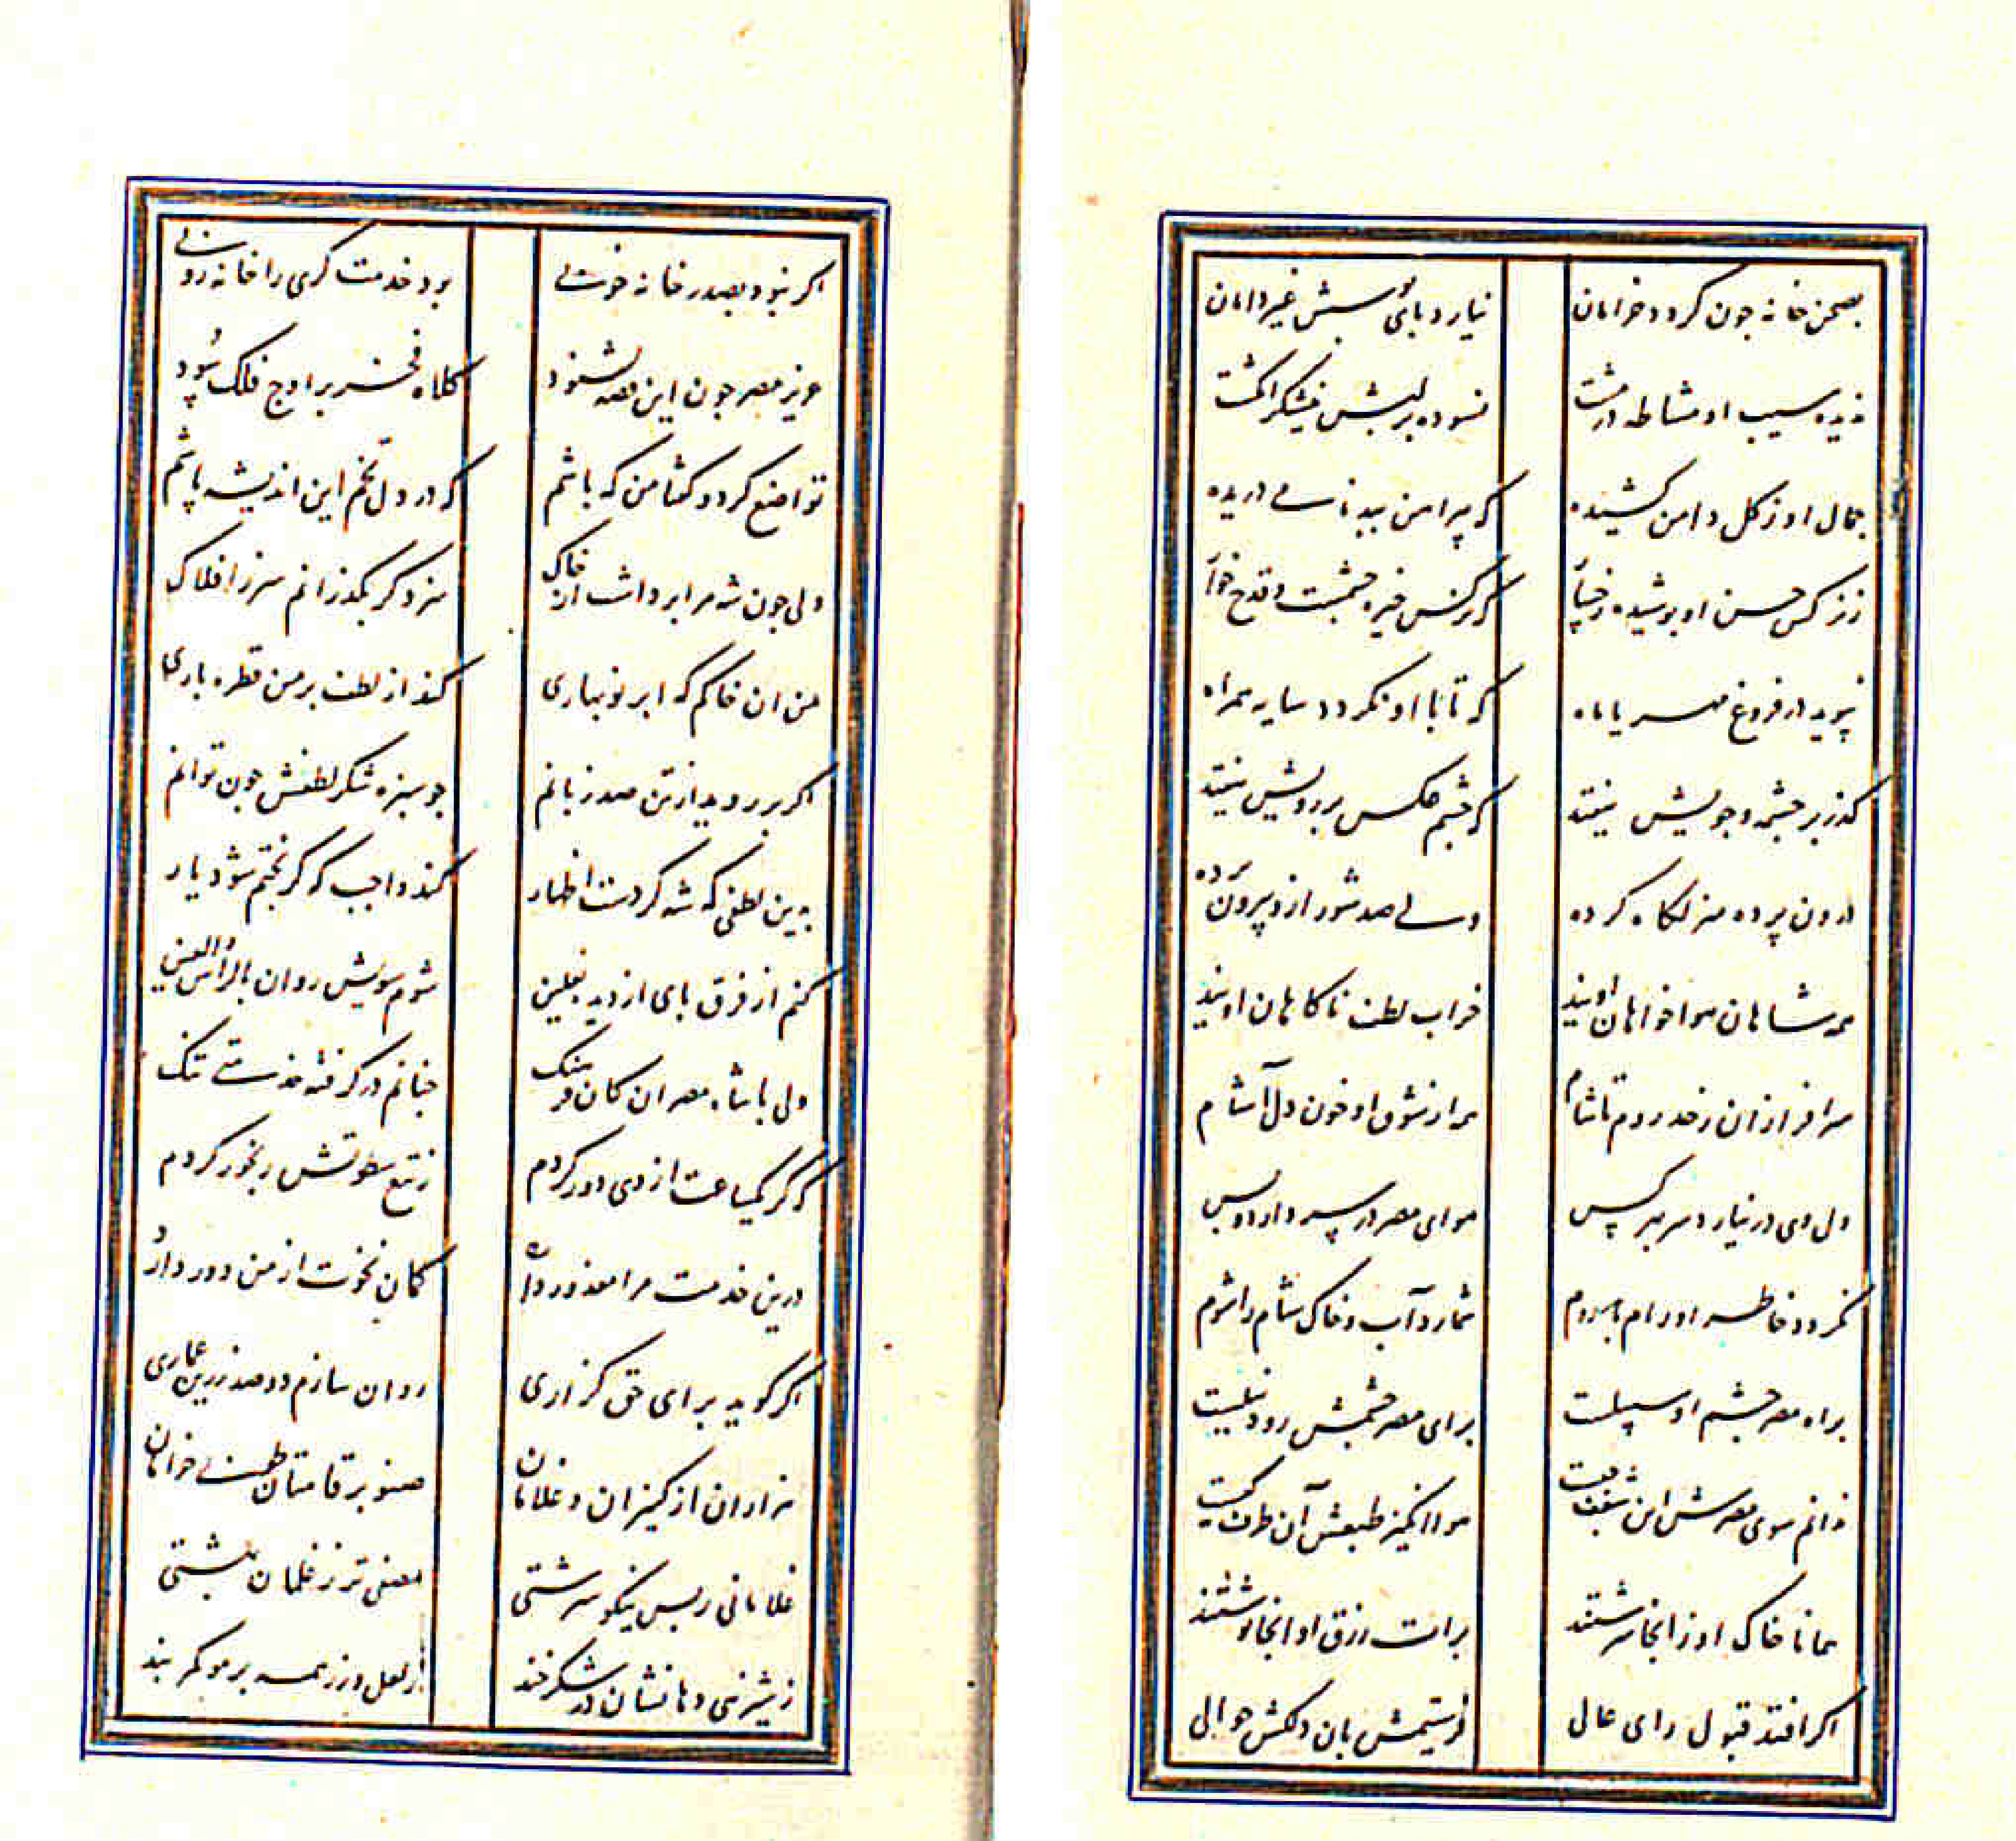 بصحن خانه چون کردد خرامان نیارد پای بوسش غیر دامان
ندیده سیب او مشاطه در مشت نسوده بر لبش نیشکر انکشت
جمال او ز کل دامن کشیده که پیراهن ببدنامی دریده
ز نرکس حسن او پوشیده رخسار که نرکس خیره چشمست و قدح خوار
نپوید در فروغ مهر یا ماه که تا با او نکردد سایه همراه
کذر بر چشمه و جویش نیفتد که چشم عکس بر رویش نیفتد
درون پرده منزلکاه کرده ولی صد شور ازو بیرون پرده
همه شاهان هواخواهان اویند خراب لطف ناکاهان اویند
سرافرازان ز حد روم تا شام همه از شوق او خون دل آشام
ولی وی در نیارد سر بهر کس هوای مصر در سر دارد و بس
نکردد خاطر او رام با روم شمارد آب و خاک شام را شوم
براه مصر چشم او سبیلست برای مصر چشمش رود نیلست
ندانم سوی مصرش این شعف چیست هوا انکیز طبعش آن طرف کیست
همانا خاک او ز انجا سرشتند برات رزق او انجا نوشتند
اکر افتد قبول رای عالی فرستیمش بان دلکش حوالی
اکر نبود بصدر خانه خوبی بود خدمت کری را خانه روبی
عزیز مصر چون این قصه بشنود کلاه فخر بر اوج فلک سود
تواضع کرد و کفتا من که باشم که در دل تخم این اندیشه پاشم
ولی چون شه مرا برداشت از خاک سزد کر بکذرانم سر ز افلاک
من ان خاکم که ابر نوبهاری کند از لطف بر من قطره باری
اکر بر روید از تن صد زبانم چو سبزه شکر لطفش چون توانم
بدین لطفی که شه کردست اظهار کند واجب که کر بختم شود یار
کنم از فرق پای از دیده نعلین شوم سویش روان بالراس والعین
ولی با شاه مصر ان کان فرهنک چنانم در کرفته خدمتی تنک
که کر یکساعت از وی دور کردم ز تیغ سطوتش رنجور کردم
درین خدمت مرا معذور دارش کمان نخوت از من دور دارش
اکر کوید برای حق کزاری روان سازم دو صد زرین عماری
هزاران از کنیزان و غلامان صنوبر قامتان طوبی خرامان
غلامانی ز بس نیکو سرشتی مصفی تر ز غلمان بهشتی
ز شیرینی دهانشان در شکرخند ز لعل و زر همه بر مو کمربند